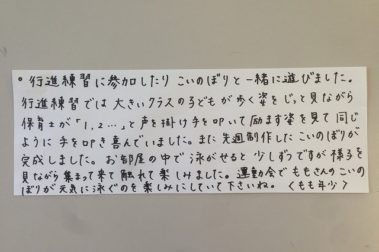 ○ 行進練習に参加したり こいのぼりと一緒に遊びました。
行進練習では 大きいクラスの子どもが歩く姿をじっと見ながら
保育士が「1，2…」と声を掛け手を叩いて励ます姿を見て同じ
ように手を叩き喜んでいました。また先週制作したこいのぼりが
完成しました。お部屋の中で泳がせると少しずつですが様子を
見ながら集まって来て触れて楽しみました。運動会でももさんのこいの
ぼりが元気に泳ぐのを楽しみにしていて下さいね。〈もも年少〉